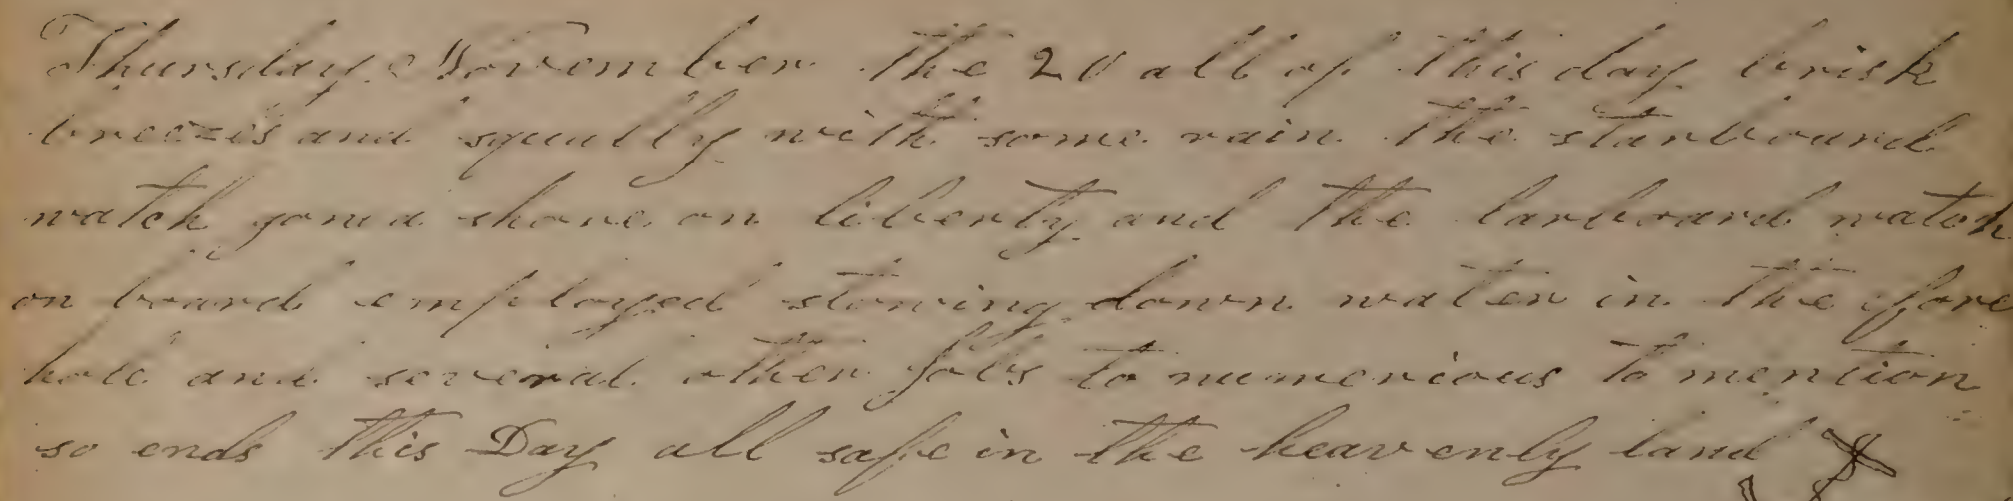 Thursday November the 20 all of this day brisk
breezes and squally with some rain the starboard
watch gone a shore on liberty and the larboard watch
on board employed stowing down water in the fore
hole and several other jobs to numerious to mention
so ends this Day all safe in the heavenly land